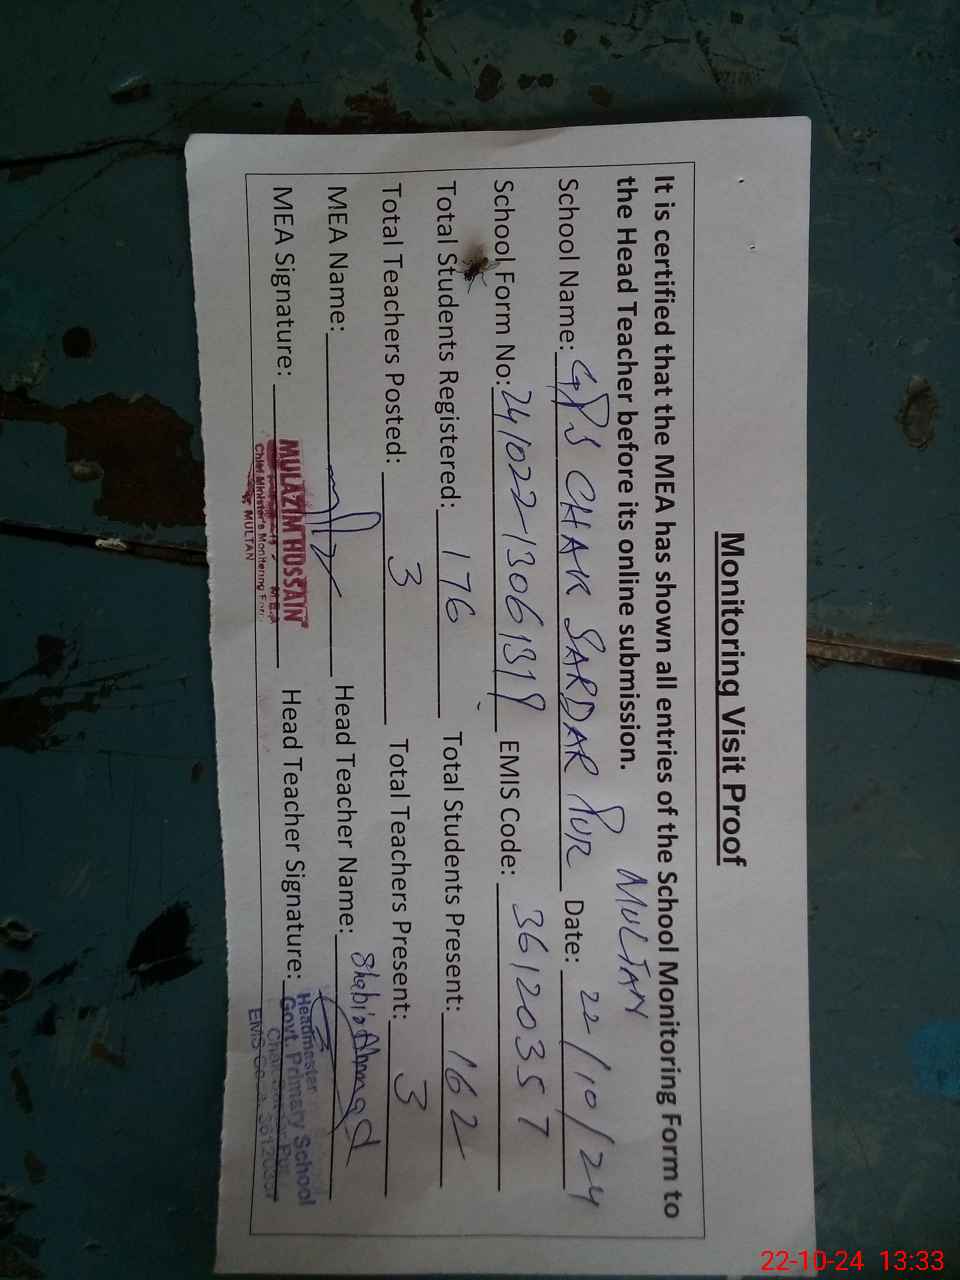 Monitoring Visit Proof
It is certified that the MEA has shown all entries of the School Monitoring Form to
the Head Teacher before its online submission.
MULTAN
School Name: GPS CHAK SARDAR PUR Date: 22/10/24
School Form No: 241022-1306131 EMIS Code: 36120357
Total Students Registered: 176 Total Students Present: 162
Total Teachers Posted: 3 Total Teachers Present: 3
MEA Name: Head Teacher Name: Shabir Ahmad
MEA Signature: Head Teacher Signature:
MULAZIM HUSSAIN
M.E.A
Chief Minister's Monitoring Force
MULTAN
Headmaster
Govt. Primary School
Chak Sardar Pur
EMIS Code 36120357
22-10-24 13:33